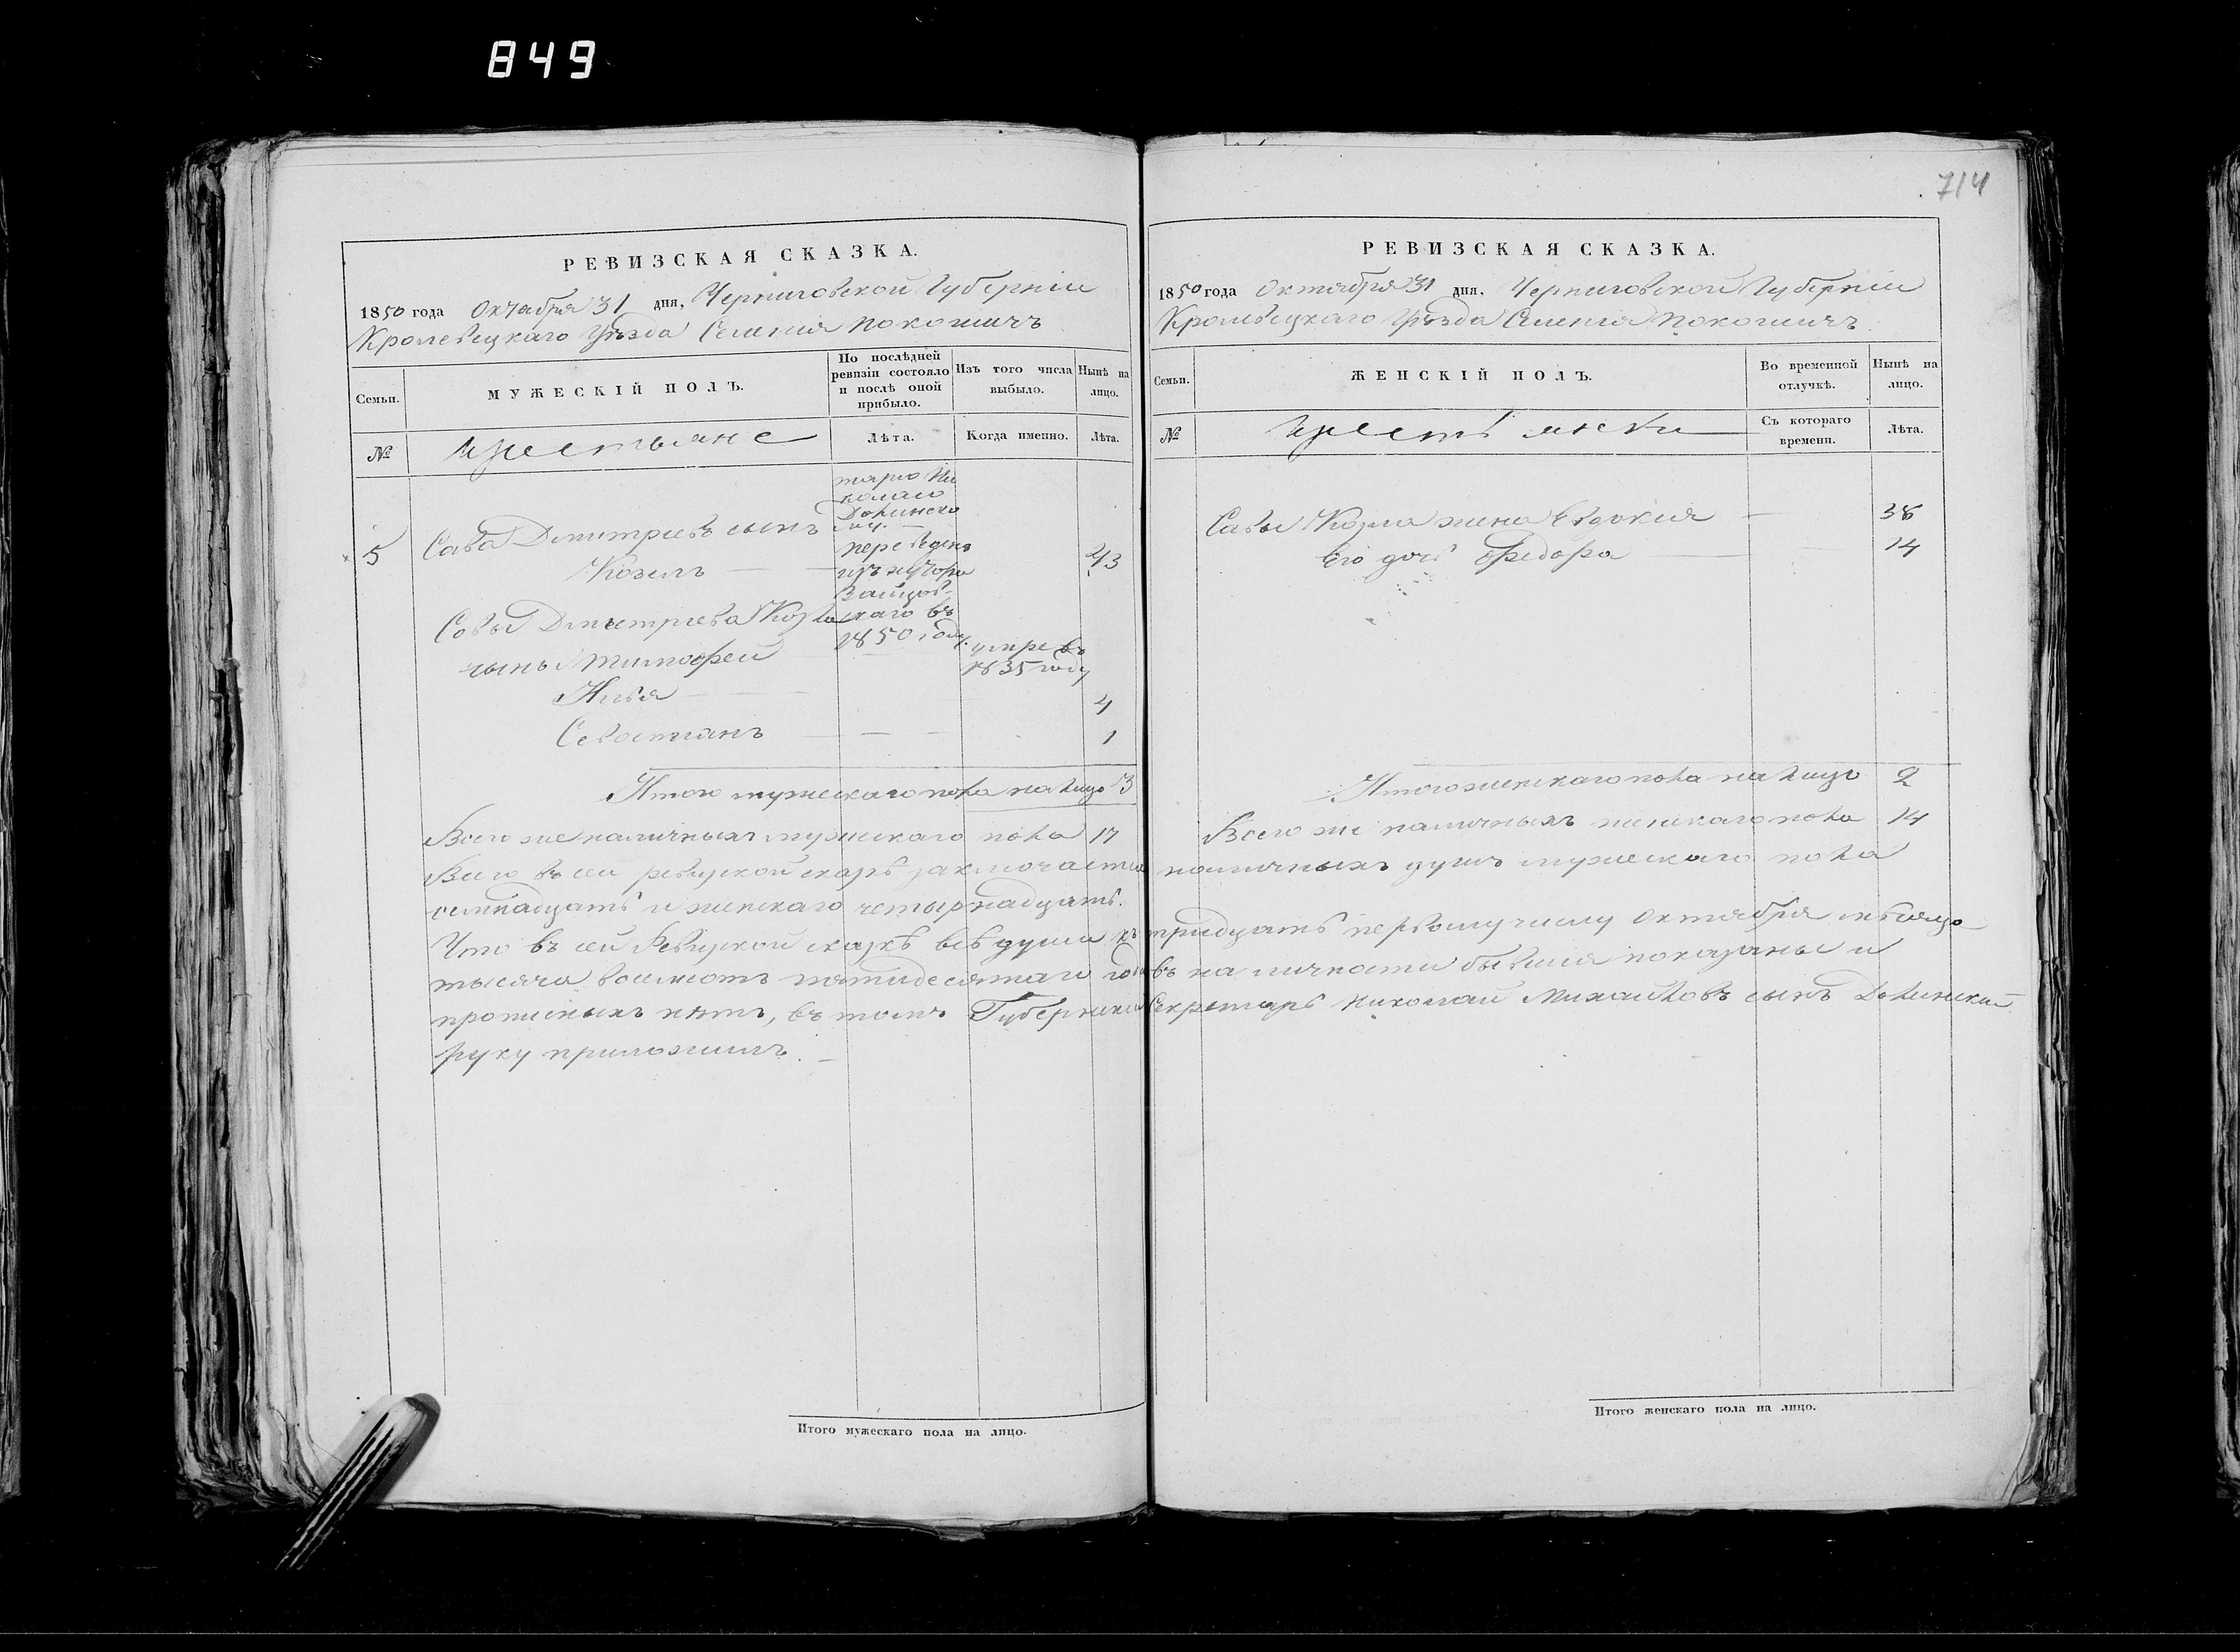 849
714
РЕВИЗСКАЯ СКАЗКА.
1850 года Октября 31 дня, Черниговской Губерніи
Кролевецкаго Уѣзда Селенія Покошичъ
Семьи.
МУЖЕСКІЙ ПОЛЪ.
По послѣдней ревизіи состояло и послѣ оной прибыло.
Изъ того числа выбыло.
Нынѣ на лицо.
№
Крестьяне
Лѣта.
Когда именно.
Лѣта.
тарю Ни
колаю
Долинско
му.
5 Сава Дмитріевъ сынъ
Козелъ
переведенъ
изъ хутора
43
Савы Дмитріева Козла
скаго въ
1850 году.
сынъ Тимофей
умре въ
1835 году
Илья 4
Севостіянъ 1
Итого мужескаго пола на лицо 3
Всего же наличныхъ мужескаго пола 17
РЕВИЗСКАЯ СКАЗКА.
1850 года Октября 31 дня, Черниговской Губерніи
Кролевецкаго Уѣзда Селенія Покошичъ
Семьи.
ЖЕНСКІЙ ПОЛЪ.
Во временной отлучкѣ.
Нынѣ на лицо.
№
Крестьянски
Съ котораго времени.
Лѣта.
Савы Козла жена Евдокія 38
Его дочь Федора 14
Итого женскаго пола на лицо 2
Всего же наличныхъ женскаго пола 14
Всего въ сей ревизской сказкѣ заключается наличныхъ душъ мужескаго пола
семнадцать и женскаго четырнадцать.
Что въ сей Ревизской сказкѣ всѣ души къ тридцать первому числу Октября мѣсяца
тысяча восемсотъ пятидесятаго года въ наличности бывшія показаны и
прописныхъ нѣтъ, въ томъ Губернский Секретарь Николай Михайловъ сынъ Долинский
руку приложилъ.
Итого мужескаго пола на лицо.
Итого женскаго пола на лицо.